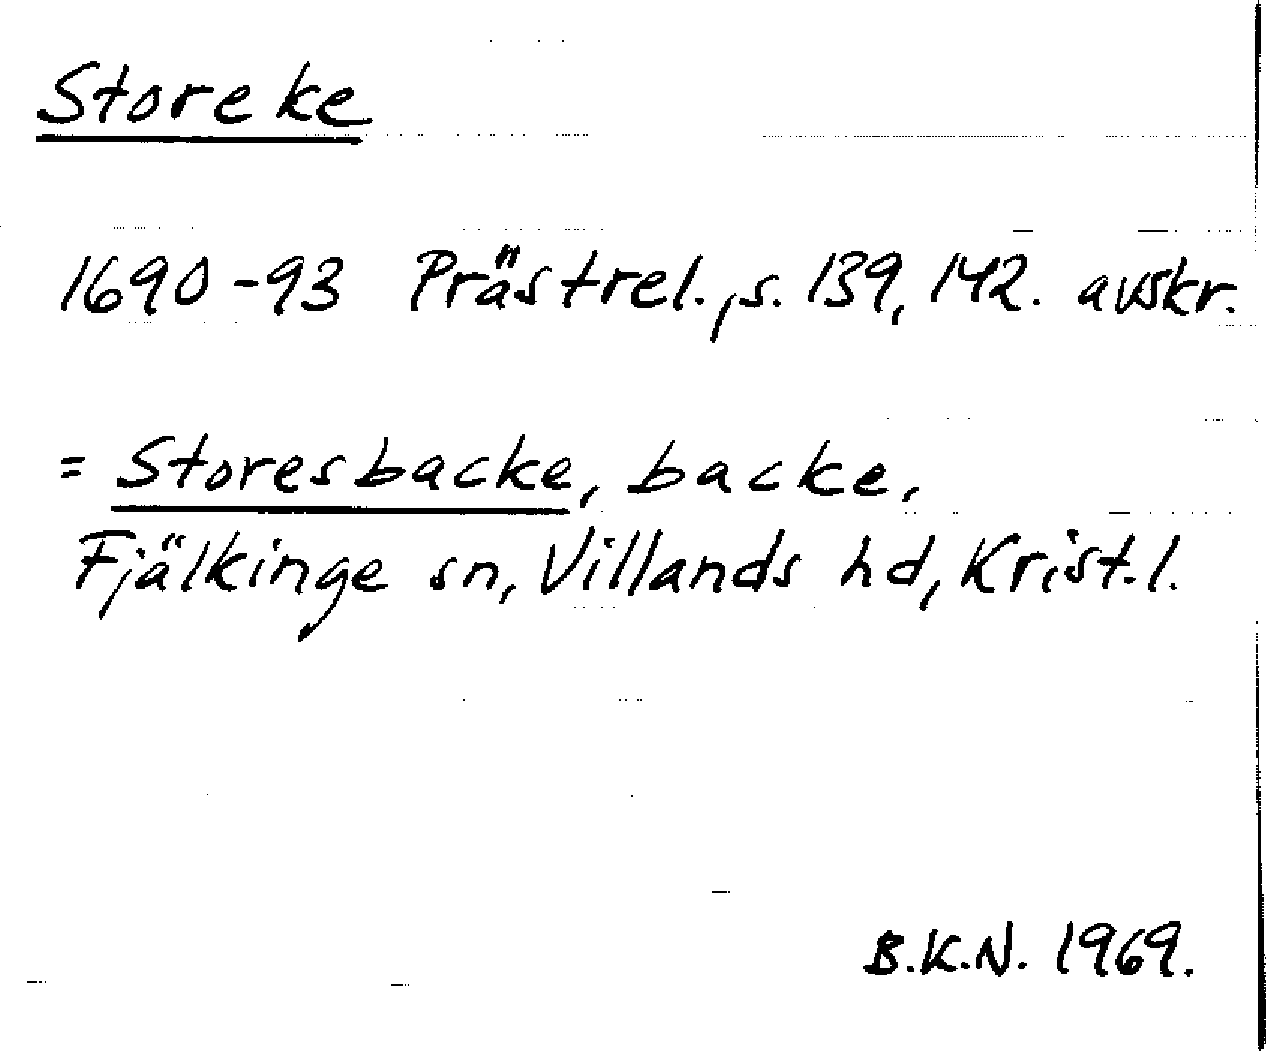 Storeke
1690-93 Prästrel., s. 139, 142. avskr.
= Storesbacke, backe,
Fjälkinge sn, Villands hd, Krist. l.
B.K.N. 1969.